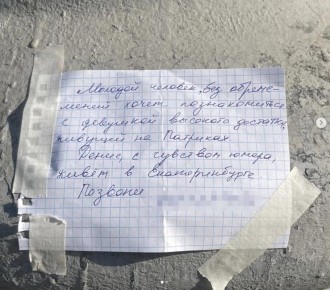 Молодой человек, без обреме-
нений хочет познакомиться
с девушкой высокого достатка,
живущей на Патриках.
Денис, с чувством юмора,
живёт в Екатеринбурге
Позвони